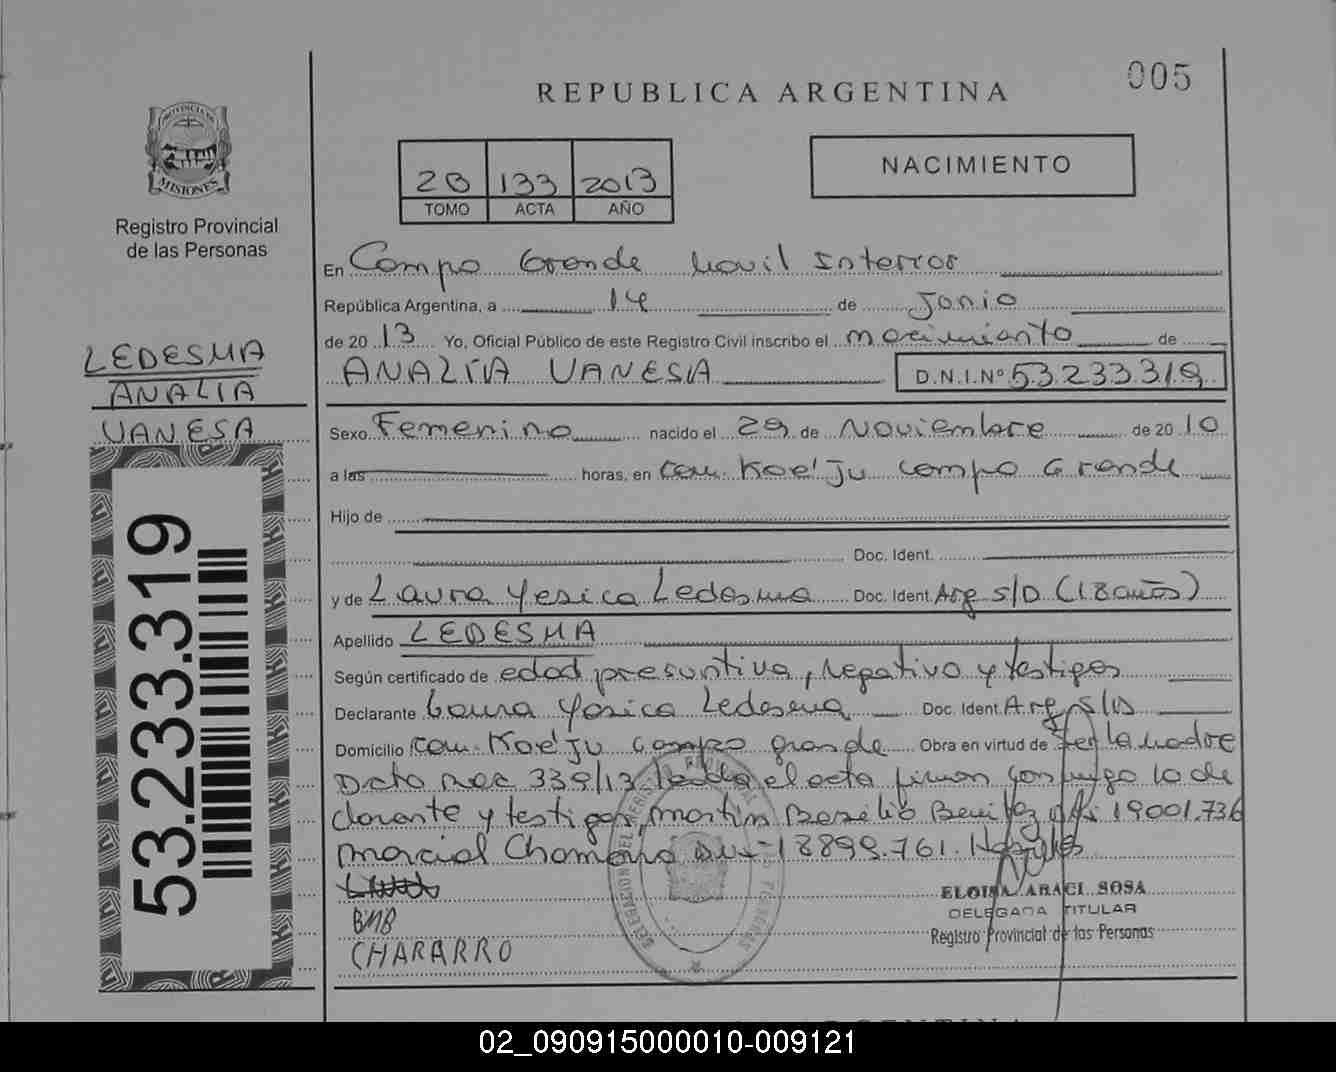 005
REPUBLICA ARGENTINA
NACIMIENTO
PROVINCIA DE
MISIONES
Registro Provincial
de las Personas
2B 133 2013
TOMO ACTA AÑO
En Campo Grande Movil Interior
República Argentina, a 14 de Junio
de 2013 Yo, Oficial Público de este Registro Civil inscribo el nacimiento de
ANALIA VANESA D.N.I.Nº 53233319
LEDESMA
ANALIA
VANESA
53.233.319
Sexo Femenino nacido el 29 de Noviembre de 2010
a las horas, en Com. Koe'Ju Campo Grande
Hijo de
Doc. Ident.
y de Laura Yesica Ledesma Doc. Ident. Arg S/D (18 años)
Apellido LEDESMA
Según certificado de edad presuntiva, negativo y testigos
Declarante Laura Yesica Ledesma Doc. Ident. Arg S/D
Domicilio Com. Koe'Ju Campo grande Obra en virtud de Ser la madre
Dcto nac 339/13 el acta firman conmigo la de
clarante y testigos, Martin Basilio Benitez DNI 19001.736
Marcial Chamorro DNI 18899.761.
BMB
CHARARRO
DELEGACION DEL REGISTRO PROVINCIAL DE LAS PERSONAS
ELOISA ARACI SOSA
DELEGADA TITULAR
Registro Provincial de las Personas
02_090915000010-009121